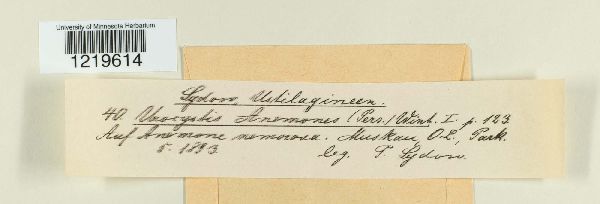 University of Minnesota Herbarium
1219614
Sydow, Ustilagineen.
40. Urocystis Anemones (Pers.) Wint. I. p. 123
Auf Anemone nemorosa. Muskau O.L., Park.
5. 1893 leg. P. Sydow.